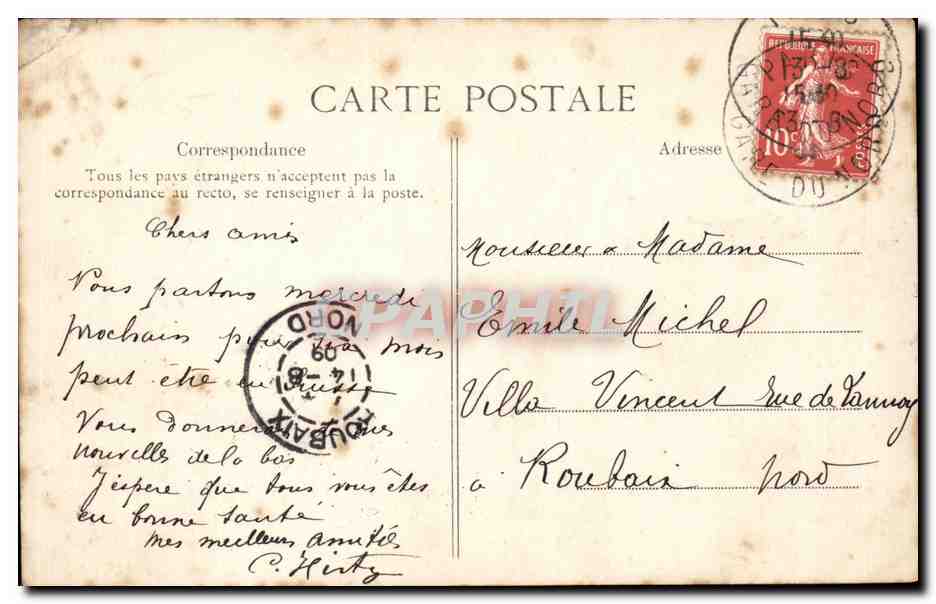 CARTE POSTALE
Correspondance
Tous les pays étrangers n'acceptent pas la
correspondance au recto, se renseigner à la poste.
Adresse
REPUBLIQUE FRANÇAISE
10c
POSTES
GARE DU NORD
Chers amis
Vous partons mercredi
prochain pour un mois
peut être en Suisse
Vous donnerai
nouvelles de la bas
J'espère que tous vous êtes
en bonne santé
mes meilleurs amitiés
C. Hirtz
ROUBAIX
14 -8
09
NORD
Monsieur & Madame
Emile Michel
Villa Vincent Rue de Lannoy
à Roubaix Nord
DELCAMPHIL